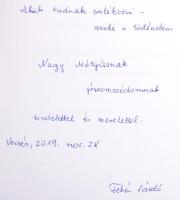 Akik tudnak emlékezni -
övéké a történelem
Nagy Mátyásnak
jószomszédomnak
tisztelettel és szeretettel.
Vecsés, 2019. nov. 28
Fehér László